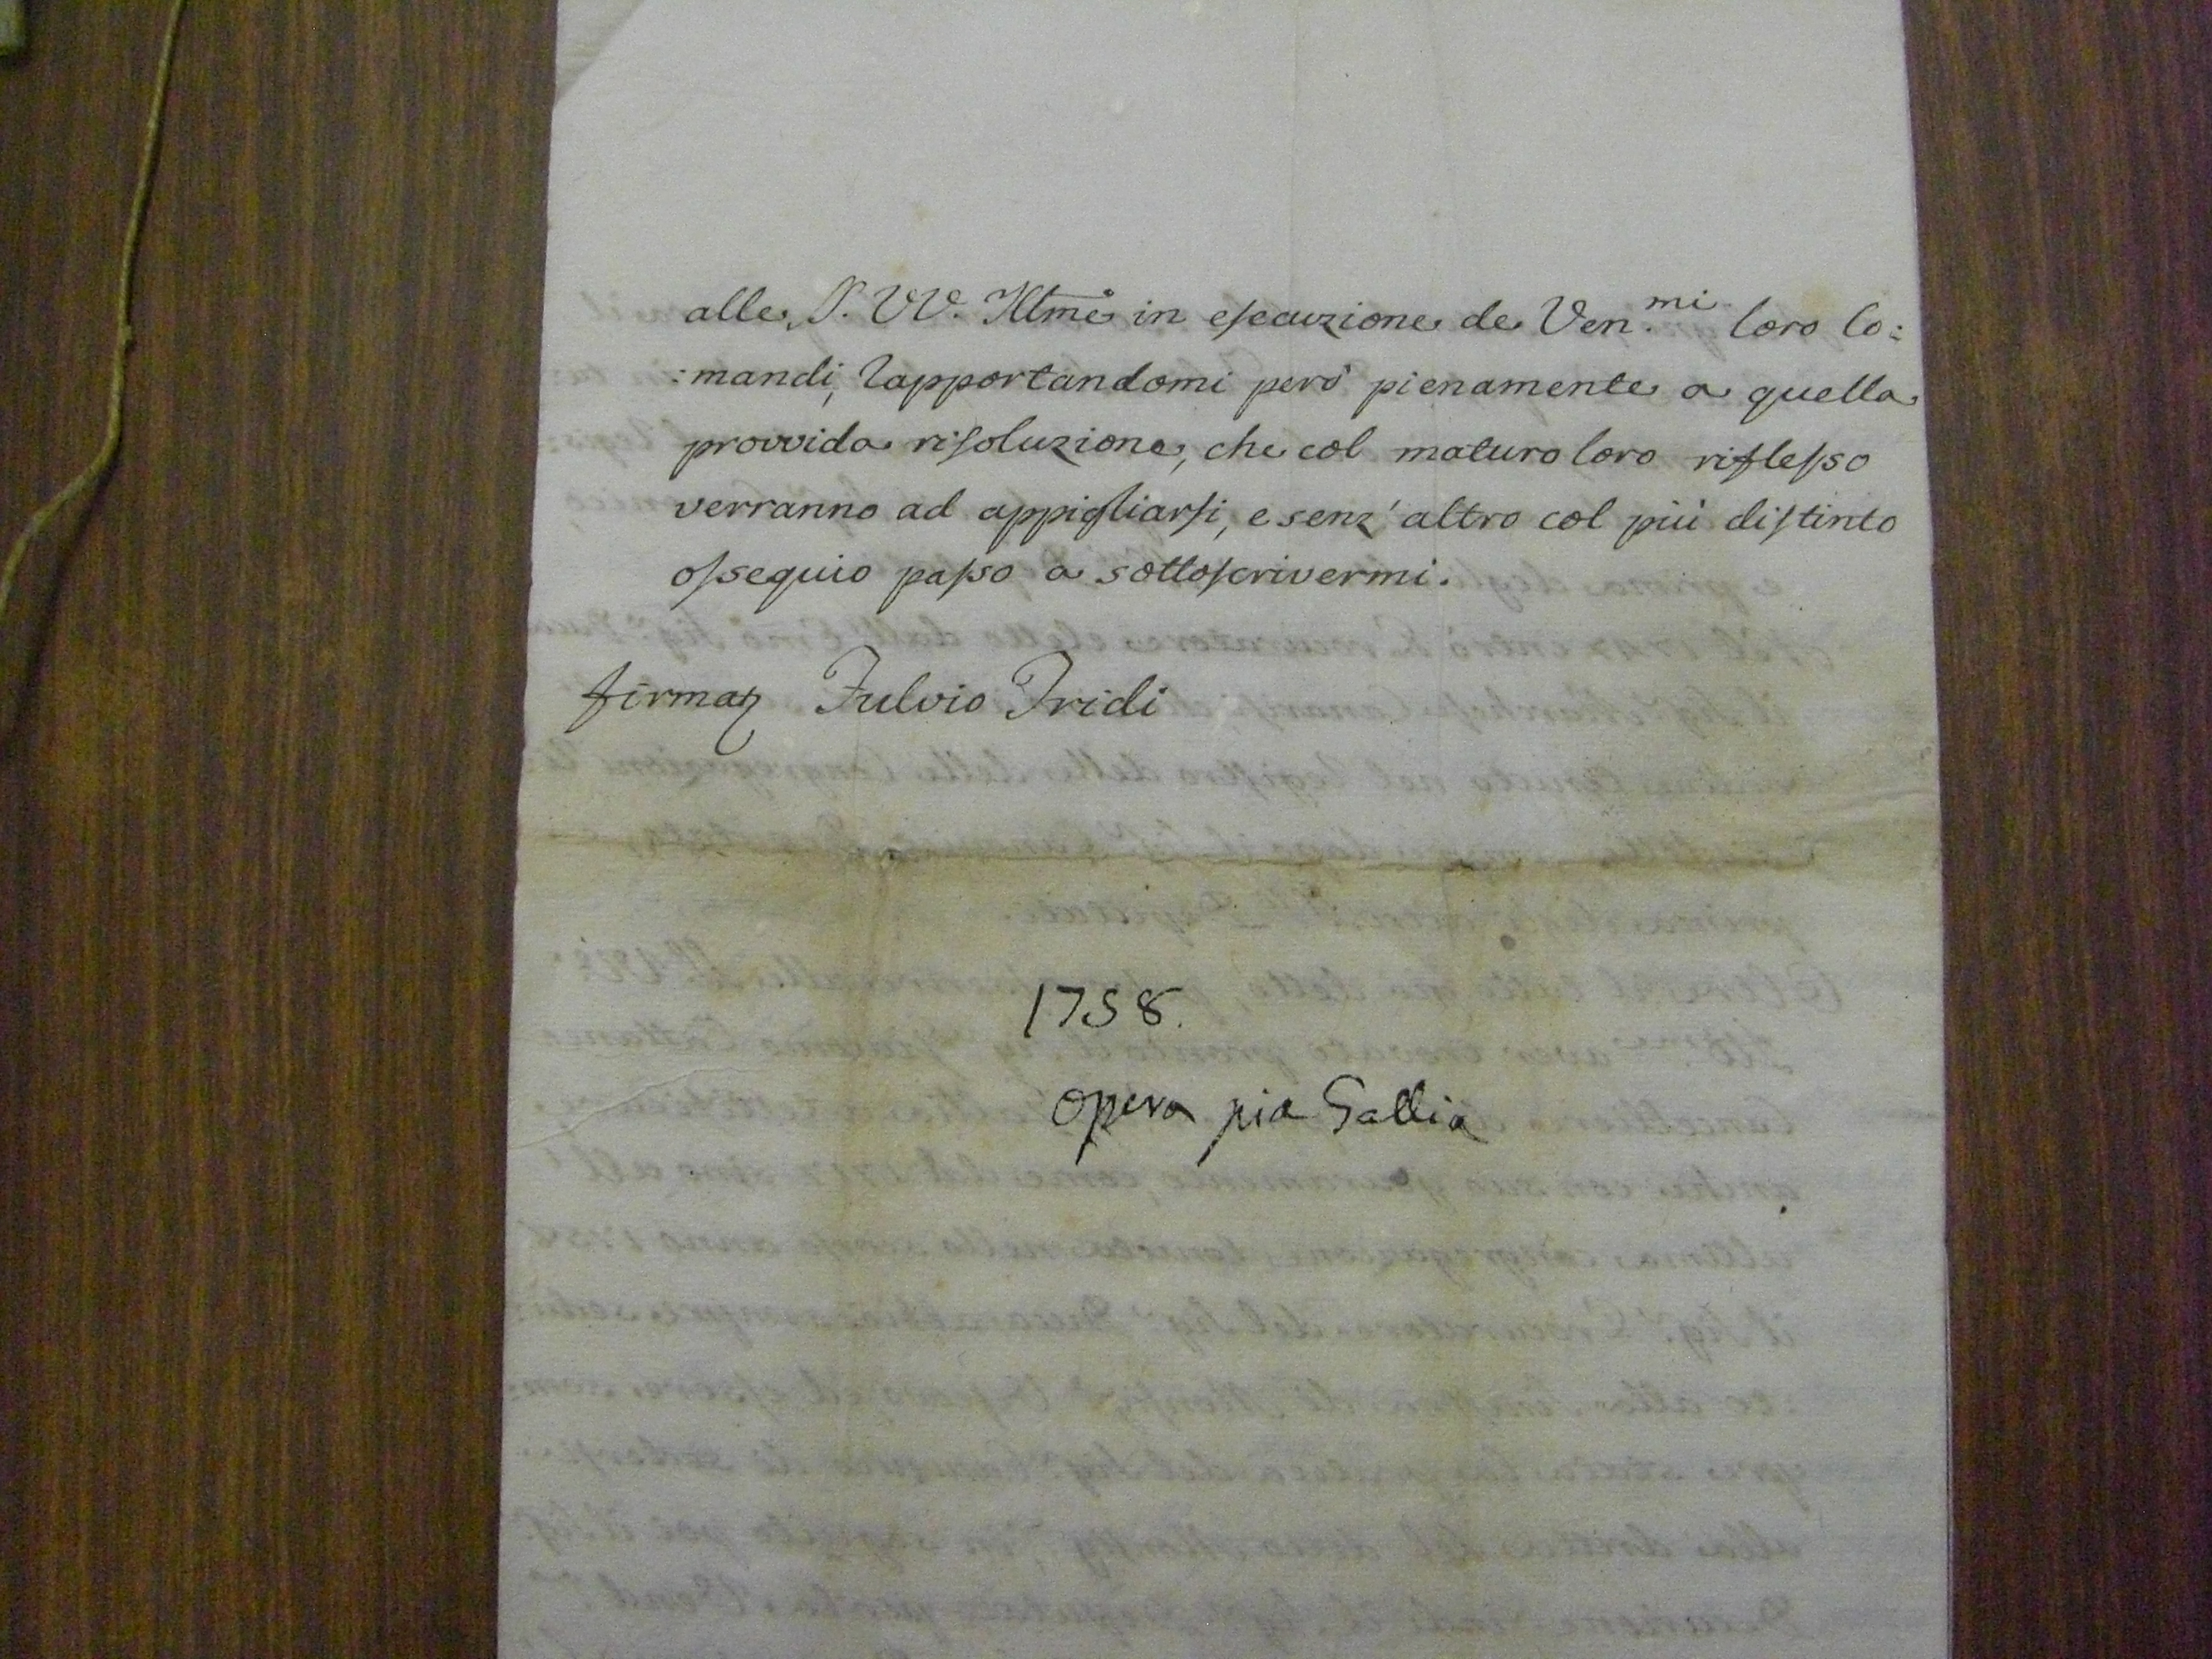 alle S. VV. Illme in esecuzione de Ven.mi loro Co:
:mandi, rapportandomi però pienamente a quella
provvida risoluzione, che col maturo loro riflesso
verranno ad appigliarsi, e senz'altro col più distinto
ossequio passo a sottoscrivermi.
firmaz Fulvio Tridi
1758.
opera pia Gallia